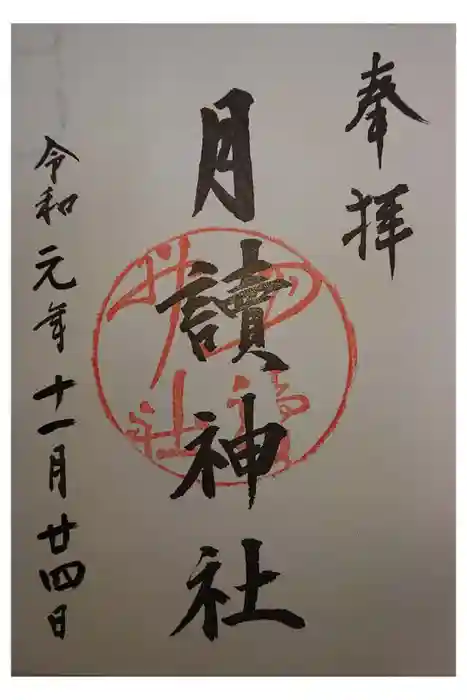 奉拝
月讀神社
令和元年十一月廿四日